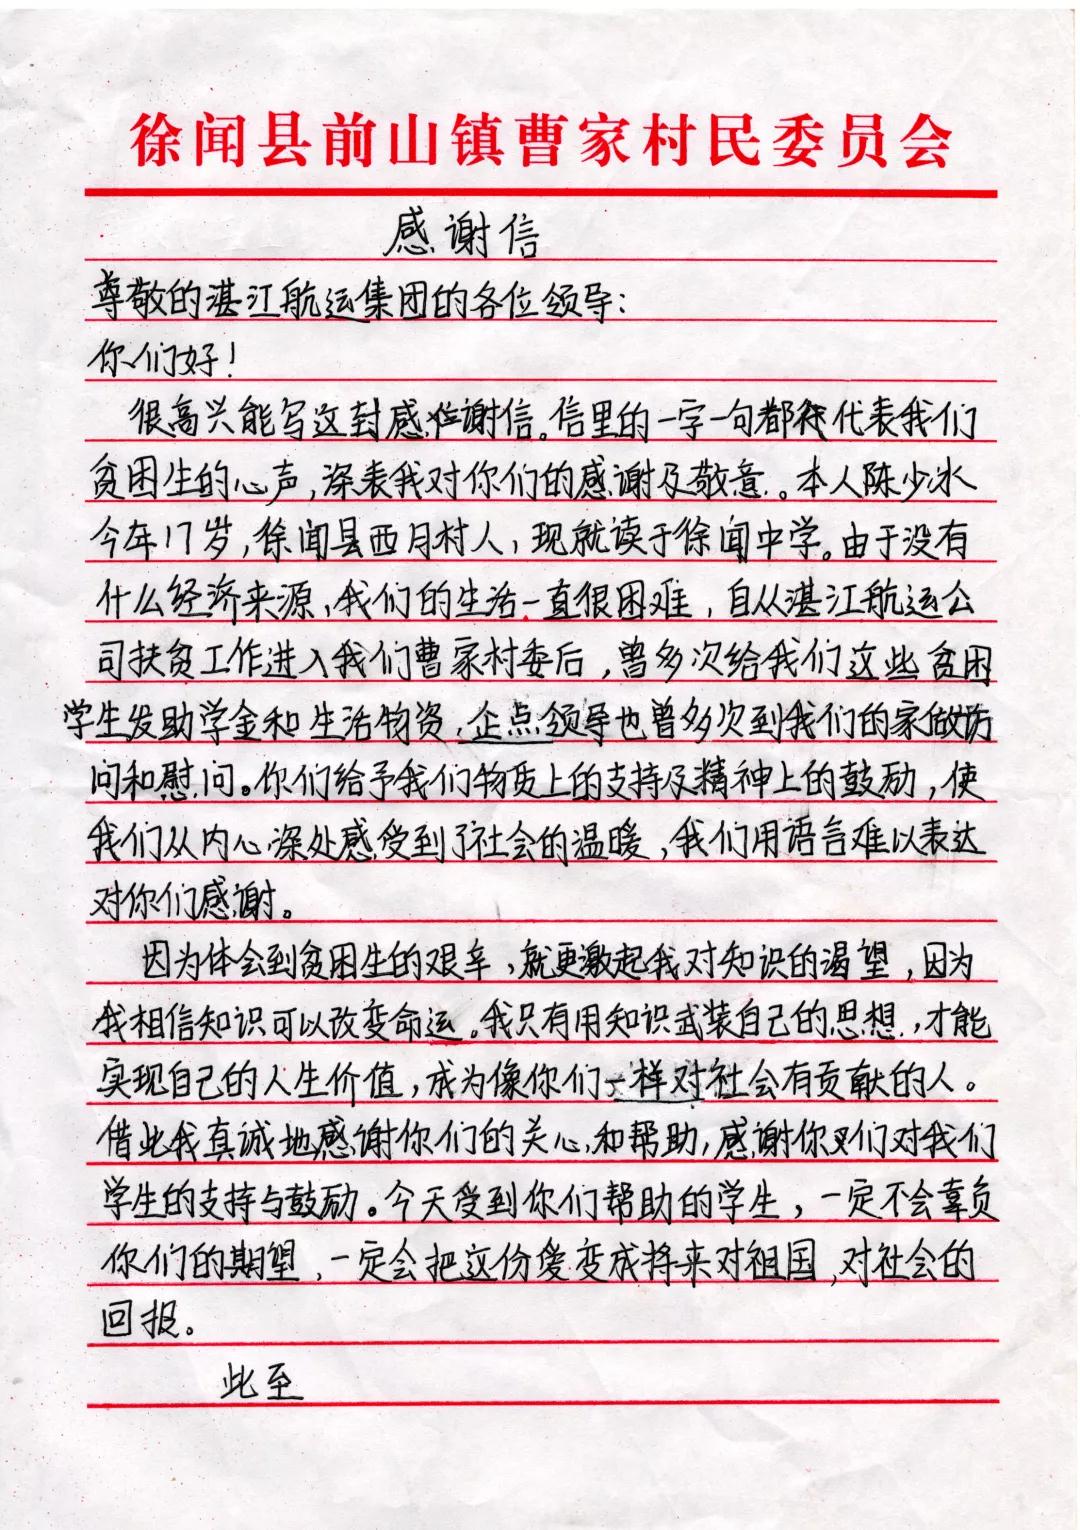 徐闻县前山镇曹家村民委员会
感谢信
尊敬的湛江航运集团的各位领导：
你们好！
很高兴能写这封感谢信。信里的一字一句都代表我们
贫困生的心声，深表我对你们的感谢及敬意。本人陈少冰
今年17岁，徐闻县西月村人，现就读于徐闻中学。由于没有
什么经济来源，我们的生活一直很困难，自从湛江航运公
司扶贫工作进入我们曹家村委后，曾多次给我们这些贫困
学生发助学金和生活物资，企点领导也曾多次到我们的家做访
问和慰问。你们给予我们物质上的支持及精神上的鼓励，使
我们从内心深处感受到了社会的温暖，我们用语言难以表达
对你们感谢。
因为体会到贫困生的艰辛，就更激起我对知识的渴望，因为
我相信知识可以改变命运。我只有用知识武装自己的思想，才能
实现自己的人生价值，成为像你们一样对社会有贡献的人。
借此我真诚地感谢你们的关心和帮助，感谢你们对我们
学生的支持与鼓励。今天受到你们帮助的学生，一定不会辜负
你们的期望，一定会把这份爱变成将来对祖国，对社会的
回报。
此至